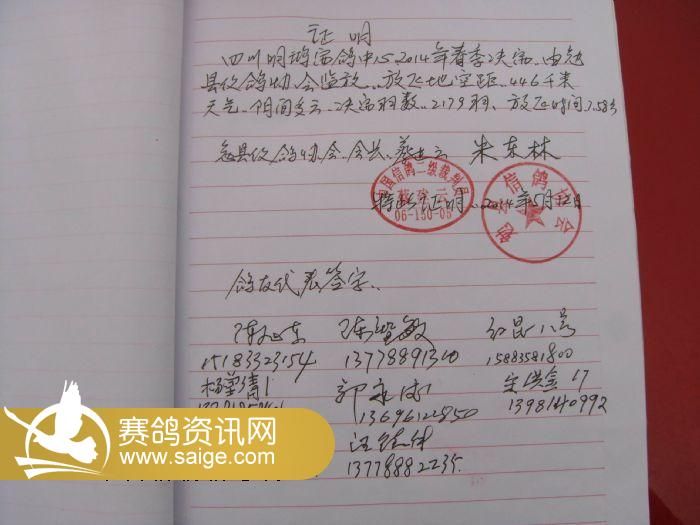 证明
四川明鸽赛鸽中心,2014年春季决赛.由勉
县信鸽协会监放,放飞地空距.446千米
天气.阴间多云.决赛羽数.2179羽.放飞时间7.58分
勉县信鸽协会会长.蔡志云 朱东林
中国信鸽二级裁判员
06-150-05
勉县信鸽协会
特此证明.2014年5月12日
鸽友代表签字.
陈 东 陈 敏 红昆八号
15183323154 13778891310 15883581800
杨 清 郭永 宋洪金 17
13696122850 13981440992
汪 伟
13778882235.
赛鸽资讯网
www.saige.com